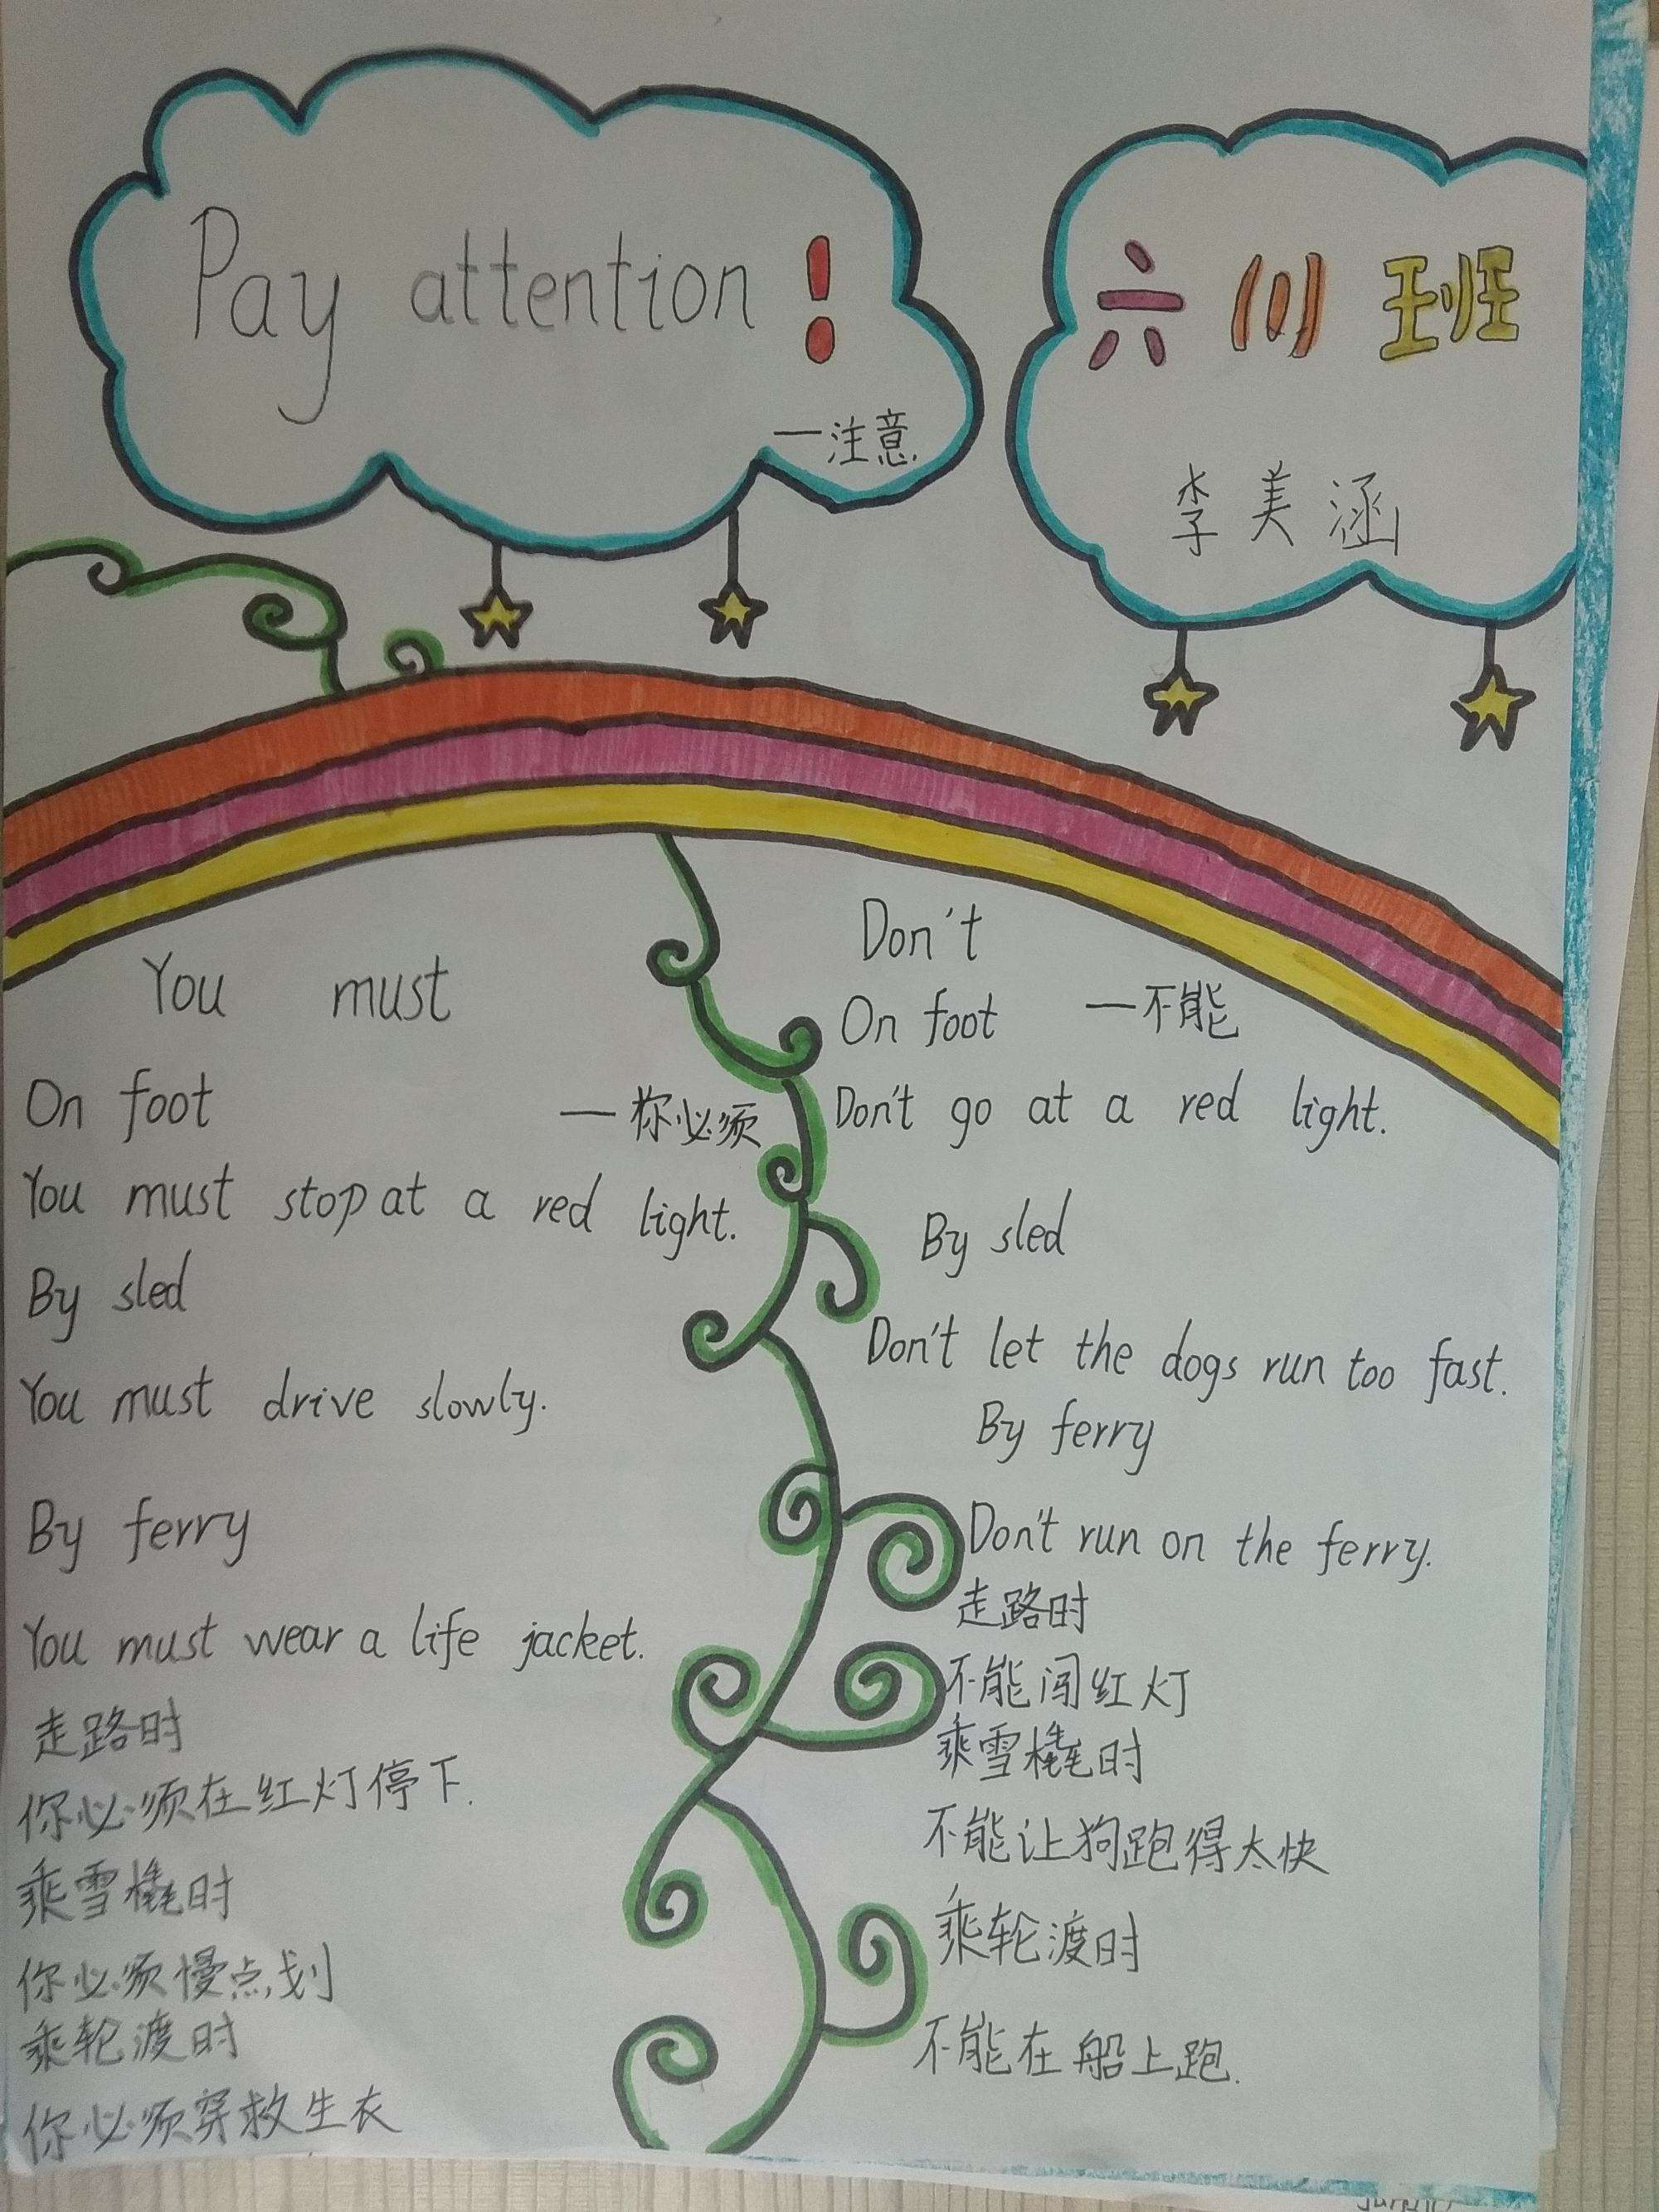 Pay attention!
一注意
六(1)班
李美涵
You must
On foot
一你必须
You must stop at a red light.
By sled
You must drive slowly.
By ferry
You must wear a life jacket.
走路时
你必须在红灯停下.
乘雪橇时
你必须慢点划
乘轮渡时
你必须穿救生衣
Don't
On foot 一不能
Don't go at a red light.
By sled
Don't let the dogs run too fast.
By ferry
Don't run on the ferry.
走路时
不能闯红灯
乘雪橇时
不能让狗跑得太快
乘轮渡时
不能在船上跑.